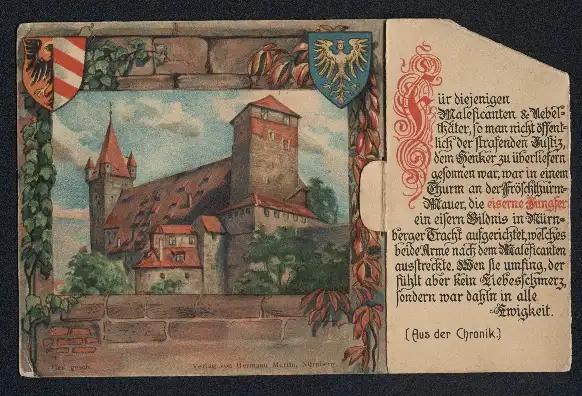 Für diejenigen
Maleficanten & Uebel-
thäter, so man nicht öffent-
lich der strafenden Justiz,
dem Henker zu überliefern
gesonnen war, war in einem
Thurm an der Froschthurm-
Mauer, die eiserne Jungfer
ein eisern Bildnis in Nürn-
berger Tracht aufgerichtet, welches
beide Arme nach dem Maleficanten
ausstreckte. Wen sie umfing, der
fühlt aber kein Liebesschmerz,
sondern war dahin in alle
Ewigkeit.
(Aus der Chronik.)
Ges. gesch.
Verlag von Hermann Martin, Nürnberg